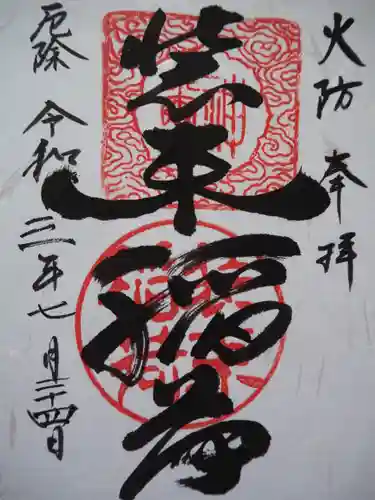 火防 奉拝
装束稲荷
厄除 令和三年七月二十四日